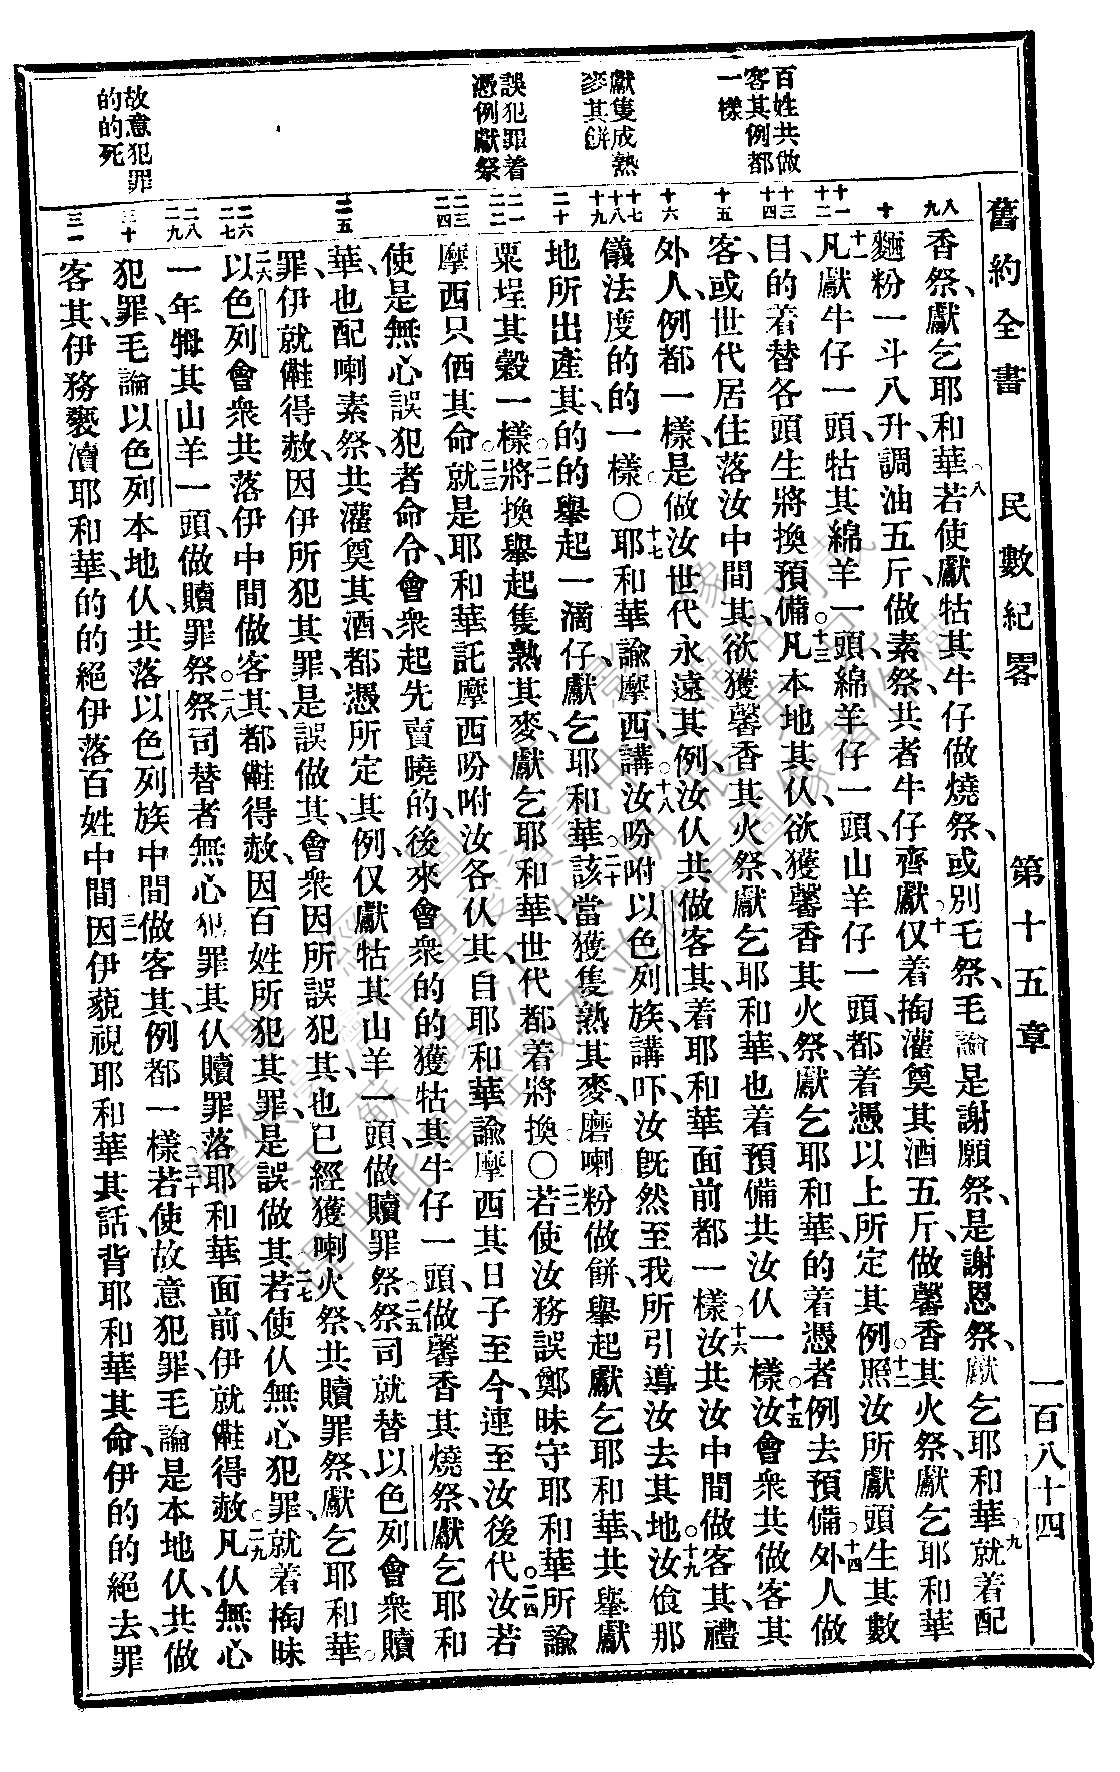 舊約全書 民數紀畧 第十五章 一百八十四
百姓共做
客其例都
一樣
獻隻成熟
麥其餅
誤犯罪着
憑例獻祭
故意犯罪
的的死
八
九
十
十一
十二
十三
十四
十五
十六
十七
十八
十九
二十
二一
二二
二三
二四
二五
二六
二七
二八
二九
三十
三一
香祭、獻乞耶和華、○八若使獻牯其牛仔做燒祭、或別乇祭、毛論是謝願祭、是謝恩祭、獻乞耶和華、○九就着配
麵粉一斗八升、調油五斤、做素祭、共者牛仔齊獻、○十仅着掏灌奠其酒五斤、做馨香其火祭、獻乞耶和華
○十一凡獻牛仔一頭、牯其綿羊一頭、綿羊仔一頭、山羊仔一頭、都着憑以上所定其例、○十二照汝所獻頭生其數
目的着替各頭生將換預備、○十三凡本地其仈、欲獲馨香其火祭、獻乞耶和華、的着憑者例去預備、○十四外人做
客、或世代居住落汝中間其、欲獲馨香其火祭、獻乞耶和華、也着預備共汝仈一樣、○十五汝會衆共做客其
外人、例都一樣、是做汝世代永遠其例、汝仈共做客其、着耶和華面前都一樣、○十六汝共汝中間做客其、禮
儀法度的的一樣、○○十七耶和華諭摩西講、○十八汝吩咐以色列族講吓、汝旣然至我所引導汝去其地、○十九汝飧那
地所出產其、的的舉起一滴仔、獻乞耶和華、○二十該當獲隻熟其麥、磨喇粉做餅、舉起獻乞耶和華、共舉獻
粟埕其穀一樣、○二一將換舉起隻熟其麥、獻乞耶和華、世代都着將換、○○二二若使汝務誤鄭昧守耶和華所諭
摩西只仴其命、○二三就是耶和華託摩西吩咐汝各仈其、自耶和華諭摩西其日子至今、連至汝後代、○二四汝若
使是無心誤犯者命令、會衆起先賣曉的、後來會衆的的獲牯其牛仔一頭、做馨香其燒祭、獻乞耶和
華、也配喇素祭、共灌奠其酒、都憑所定其例、仅獻牯其山羊一頭、做贖罪祭、○二五祭司就替以色列會衆贖
罪、伊就儺得赦、因伊所犯其罪、是誤做其、會衆因所誤犯其、也已經獲喇火祭、共贖罪祭、獻乞耶和華、
○二六以色列會衆共落伊中間做客其、都儺得赦、因百姓所犯其罪、是誤做其、○二七若使仈無心犯罪、就着掏昧
一年犓其山羊一頭、做贖罪祭、○二八祭司替者無心犯罪其仈贖罪、落耶和華面前、伊就儺得赦、○二九凡仈無心
犯罪、毛論以色列本地仈、共落以色列族中間做客其、例都一樣、○三十若使故意犯罪、毛論是本地仈、共做
客其、伊務褻瀆耶和華、的的絕伊落百姓中間、○三一因伊藐視耶和華其話、背耶和華其命、伊的的絕去、罪